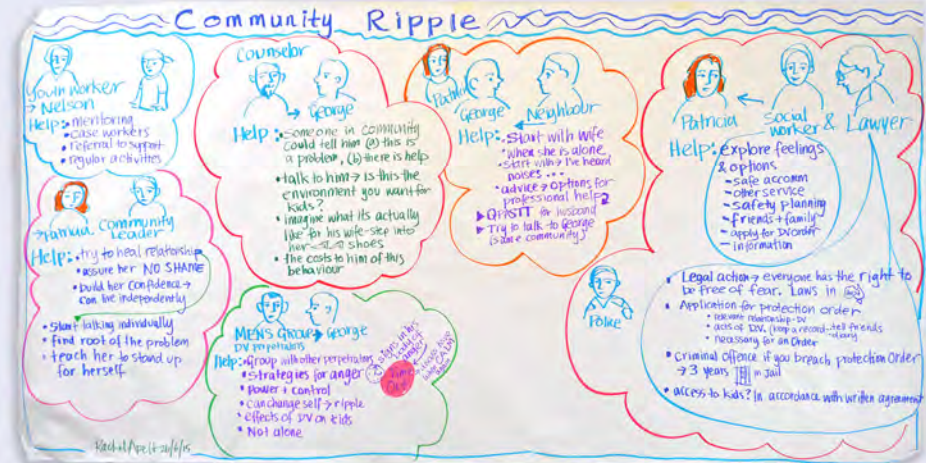 Community Ripple
Youth Worker
→ Nelson
Help: • mentoring
• case workers
• referral to support
• regular activities
→ Patricia Community
Leader
Help: • try to heal relationship
• assure her NO SHAME
• build her confidence →
can live independently
• Start talking individually
• find root of the problem
• teach her to stand up
for herself
Rachel Apelt 26/6/15
Counselor
→ George
Help: • Someone in community
could tell him (a) this is
a problem, (b) there is help
• talk to him → is this the
environment you want for
kids?
• imagine what its actually
like for his wife - step into
her shoes
• the costs to him of this
behaviour
MEN'S GROUP → George
DV perpetrators
Help: • Group with other perpetrators
• Strategies for anger
• Power + control
• can change self → ripple
• effects of DV on kids
• Not alone
signs in his
body of
anger
Time
Out!
CALM
Patricia
George Neighbour
Help: • Start with wife
when she is alone
• start with → I've heard
noises ...
• advice → options for
professional help
► QPASTT for husband
► Try to talk to George
(same community)
Patricia Social
worker & Lawyer
Help: explore feelings
& options
- safe accomm
- other service
- safety planning
- friends + family
- apply for DV order
- information
Police
• Legal action → everyone has the right to
be free of fear. Laws in
• Application for protection order
• relevant relationship - DV
• acts of DV. (keep a record - tell friends
- diary
• necessary for an Order
• Criminal offence if you breach protection Order
→ 3 years in Jail
• access to kids? In accordance with written agreement